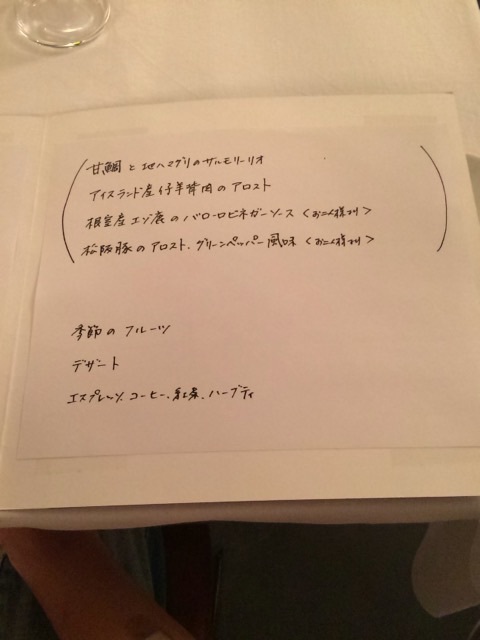 甘鯛と地ハマグリのサルモリーリオ
アイスランド産仔羊背肉のアロスト
根室産エゾ鹿のバローロビネガーソース<お二人様より>
松阪豚のアロスト、グリーンペッパー風味<お二人様より>
季節のフルーツ
デザート
エスプレッソ、コーヒー、紅茶、ハーブティ